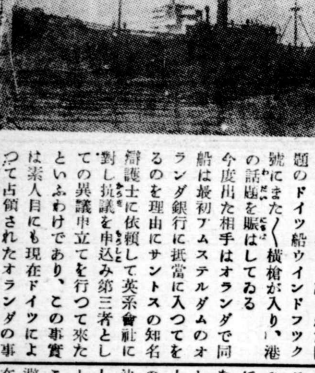 題のドイツ船ウインドフツク
號にまた〱横槍が入り、港
の話題を賑はしてゐる
今度出た相手はオランダで同
船は最初アムステルダムのオ
ランダ銀行に抵當に入つてを
るのを理由にサントスの知名
辯護士に依頼して英系會社に
對し抗議を申込み第三者とし
ての異議申立てを行つて來た
といふわけであり、この事實
は素人目にも現在ドイツによ
つて占領されたオランダの事